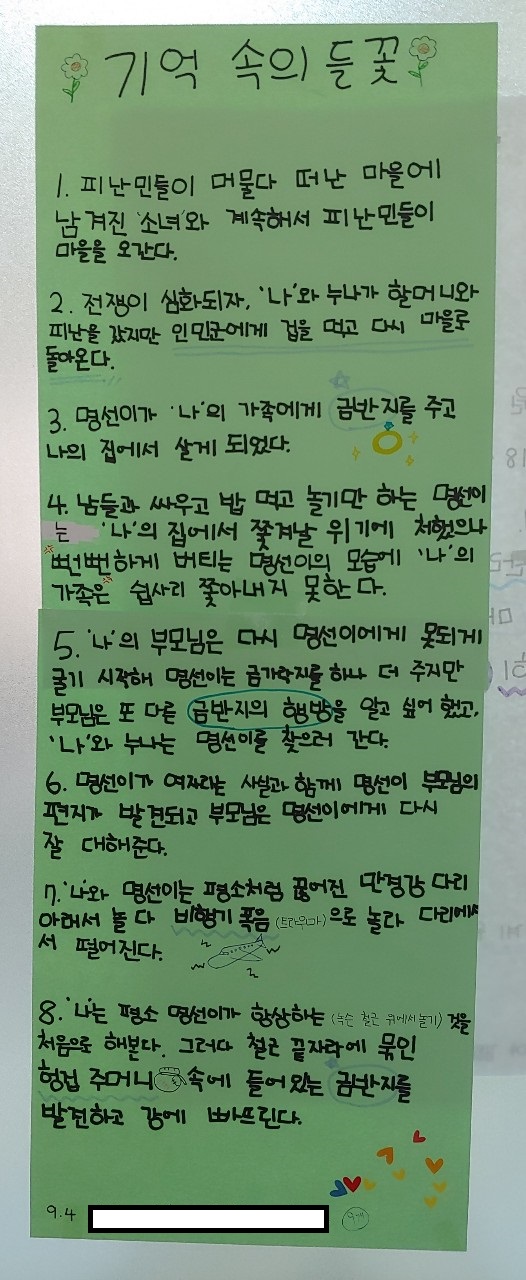 기억 속의 들꽃
1. 피난민들이 머물다 떠난 마을에
남겨진 '소녀'와 계속해서 피난민들이
마을을 오간다.
2. 전쟁이 심화되자, '나'와 누나가 할머니와
피난을 갔지만 인민군에게 겁을 먹고 다시 마을로
돌아온다.
3. 명선이가 '나'의 가족에게 금반지를 주고
나의 집에서 살게 되었다.
4. 남들과 싸우고 밥 먹고 놀기만 하는 명선이
는 '나'의 집에서 쫓겨날 위기에 처했으나
뻔뻔하게 버티는 명선이의 모습에 '나'의
가족은 쉽사리 쫓아내지 못한다.
5. '나'의 부모님은 다시 명선이에게 못되게
굴기 시작해 명선이는 금가락지를 하나 더 주지만
부모님은 또 다른 금반지의 행방을 알고 싶어 했고,
'나'와 누나는 명선이를 찾으러 간다.
6. 명선이가 여자라는 사실과 함께 명선이 부모님의
편지가 발견되고 부모님은 명선이에게 다시
잘 대해준다.
7. '나'와 명선이는 평소처럼 끊어진 만경강 다리
아래서 놀다 비행기 폭음(트라우마)으로 놀라 다리에서
서 떨어진다.
8. '나'는 평소 명선이가 항상하는 (녹슨 철근 위에서 놀기) 것을
처음으로 해본다. 그러다 철근 끝자락에 묶인
헝겊 주머니 속에 들어있는 금반지를
발견하고 강에 빠뜨린다.
9.4